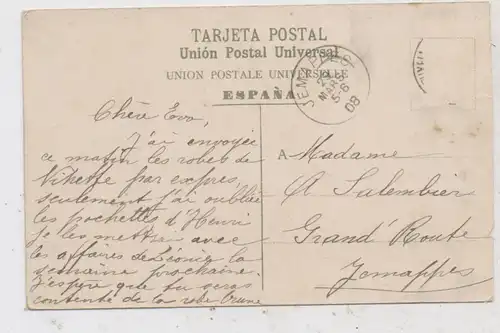 TARJETA POSTAL
Unión Postal Universal
UNION POSTALE UNIVERSELLE
ESPAÑA
JEMAPPES
MARS
5-6
08
Chère Eva,
J'ai envoyée
ce matin les robes de
par expres,
seulement j'ai oubliée
les pochettes d'Henri
je les mettrai avec
les affaires de la
semaine prochaine.
J'espère que tu seras
contente de la robe brune
A Madame
A Salembier
Grand'Route
Jemappes